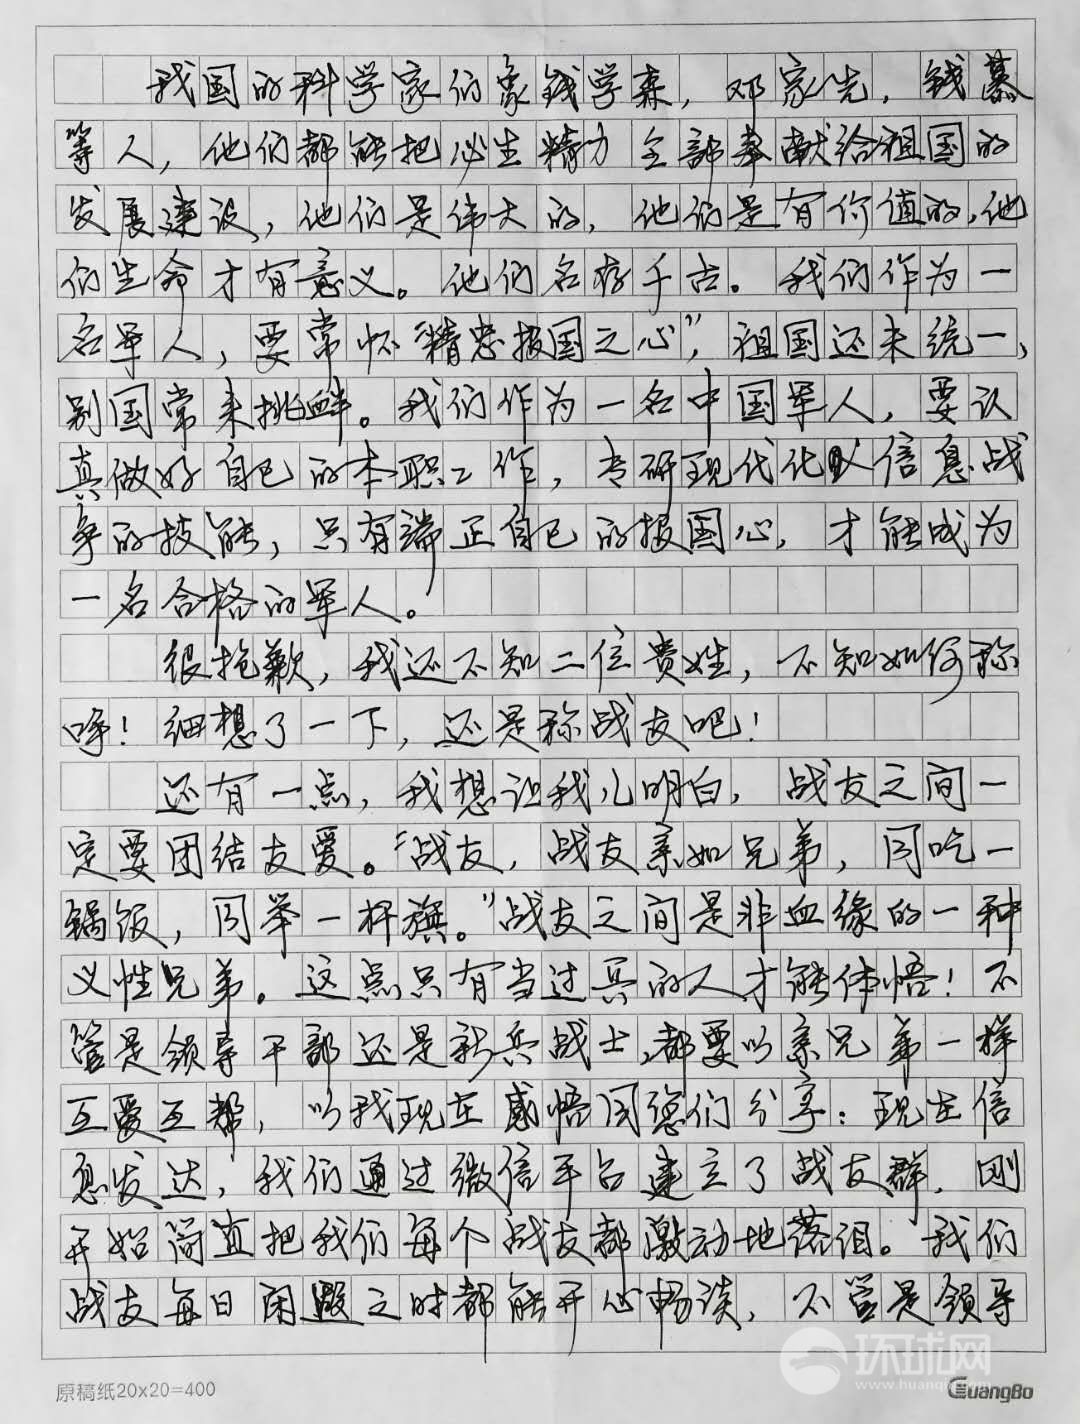 我国的科学家们象钱学森，邓家先，钱慕
等人，他们都能把必生精力全部奉献给祖国的
发展建设，他们是伟大的，他们是有价值的，他
们生命才有意义。他们名存千古。我们作为一
名军人，要常怀“精忠报国之心”，祖国还未统一，
别国常来挑衅。我们作为一名中国军人，要认
真做好自己的本职工作，专研现代化以信息战
争的技能，只有端正自己的报国心，才能成为
一名合格的军人。
很抱歉，我还不知二位贵姓，不知如何称
呼！细想了一下，还是称战友吧！
还有一点，我想让我儿明白，战友之间一
定要团结友爱。“战友，战友亲如兄弟，同吃一
锅饭，同举一杆旗。”战友之间是非血缘的一种
义性兄弟。这点只有当过兵的人才能体悟！不
管是领导干部还是新兵战士，都要以亲兄弟一样
互爱互帮，以我现在感悟同您们分享：现在信
息发达，我们通过微信平台建立了战友群，刚
开始简直把我们每个战友都激动地落泪。我们
战友每日闲暇之时都能开心畅谈，不管是领导
环球网
www.huanqiu.com
原稿纸20x20=400
GuangBo